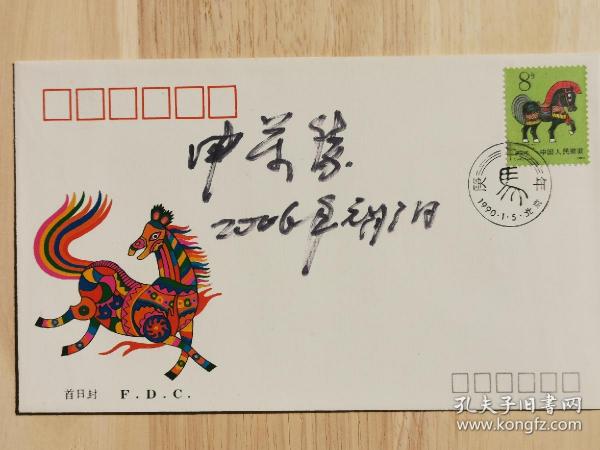 8分
中国人民邮政
庚午年
1990·1·5·北京
申万胜
2006年
首日封 F.D.C.
孔夫子旧书网
www.kongfz.com